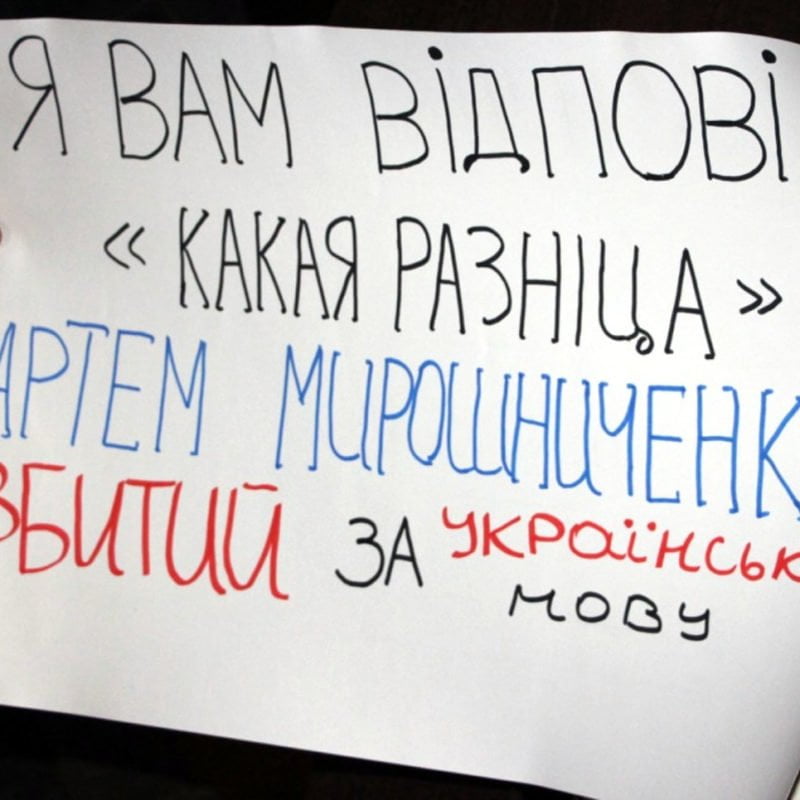 Я ВАМ ВІДПОВІ
« КАКАЯ РАЗНІЦА »
АРТЕМ МИРОШНИЧЕНК
ВБИТИЙ ЗА УКРАЇНСЬК
МОВУ